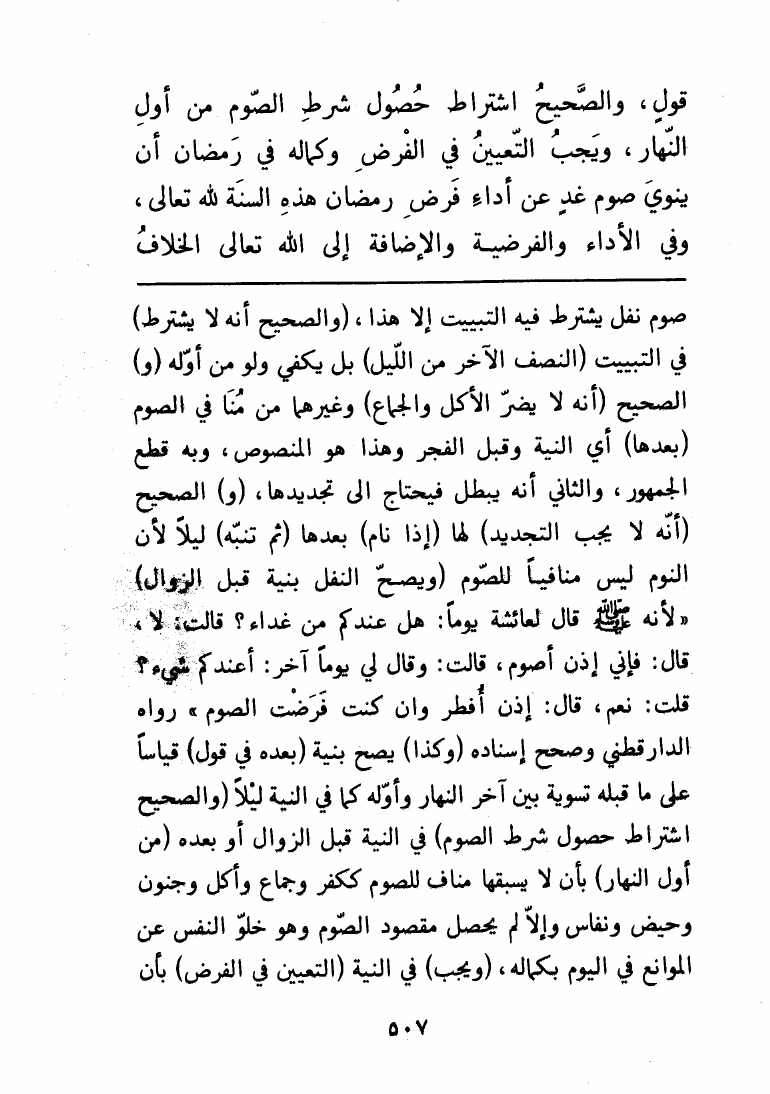 قولٍ، والصَّحيحُ اشتراط حُصُول شرطِ الصّوم من أولِ
النّهار، ويَجبُ التّعيينُ في الفْرضِ وكماله في رَمضان أن
ينويَ صوم غدٍ عن أداءِ فَرضِ رمضان هذهِ السنَة لله تعالى،
وفي الأداء والفرضية والإضافة إلى الله تعالى الخلافُ
صوم نفل يشترط فيه التبييت إلا هذا، (والصحيح أنه لا يشترط)
في التبييت (النصف الآخر من اللّيل) بل يكفي ولو من أوّله (و)
الصحيح (أنه لا يضرّ الأكل والجماع) وغيرهما من مُنَا في الصوم
(بعدها) أي النية وقبل الفجر وهذا هو المنصوص، وبه قطع
الجمهور، والثاني أنه يبطل فيحتاج الى تجديدها، (و) الصحيح
(أنّه لا يجب التجديد) لها (إذا نام) بعدها (ثم تنبّه) ليلاً لأن
النوم ليس منافياً للصّوم (ويصحّ النفل بنية قبل الزوال)
«لأنه ﷺ قال لعائشة يوماً: هل عندكم من غداء؟ قالت: لا،
قال: فإني إذن أصوم، قالت: وقال لي يوماً آخر: أعندكم شيء؟
قلت: نعم، قال: إذن أُفطر وان كنت فَرَضْت الصوم» رواه
الدارقطني وصحح إسناده (وكذا) يصح بنية (بعده في قول) قياساً
على ما قبله تسوية بين آخر النهار وأوّله كما في النية ليْلاً (والصحيح
اشتراط حصول شرط الصوم) في النية قبل الزوال أو بعده (من
أول النهار) بأن لا يسبقها مناف للصوم ككفر وجماع وأكل وجنون
وحيض ونفاس وإلاّ لم يحصل مقصود الصّوم وهو خلوّ النفس عن
الموانع في اليوم بكماله، (ويجب) في النية (التعيين في الفرض) بأن
٥٠٧